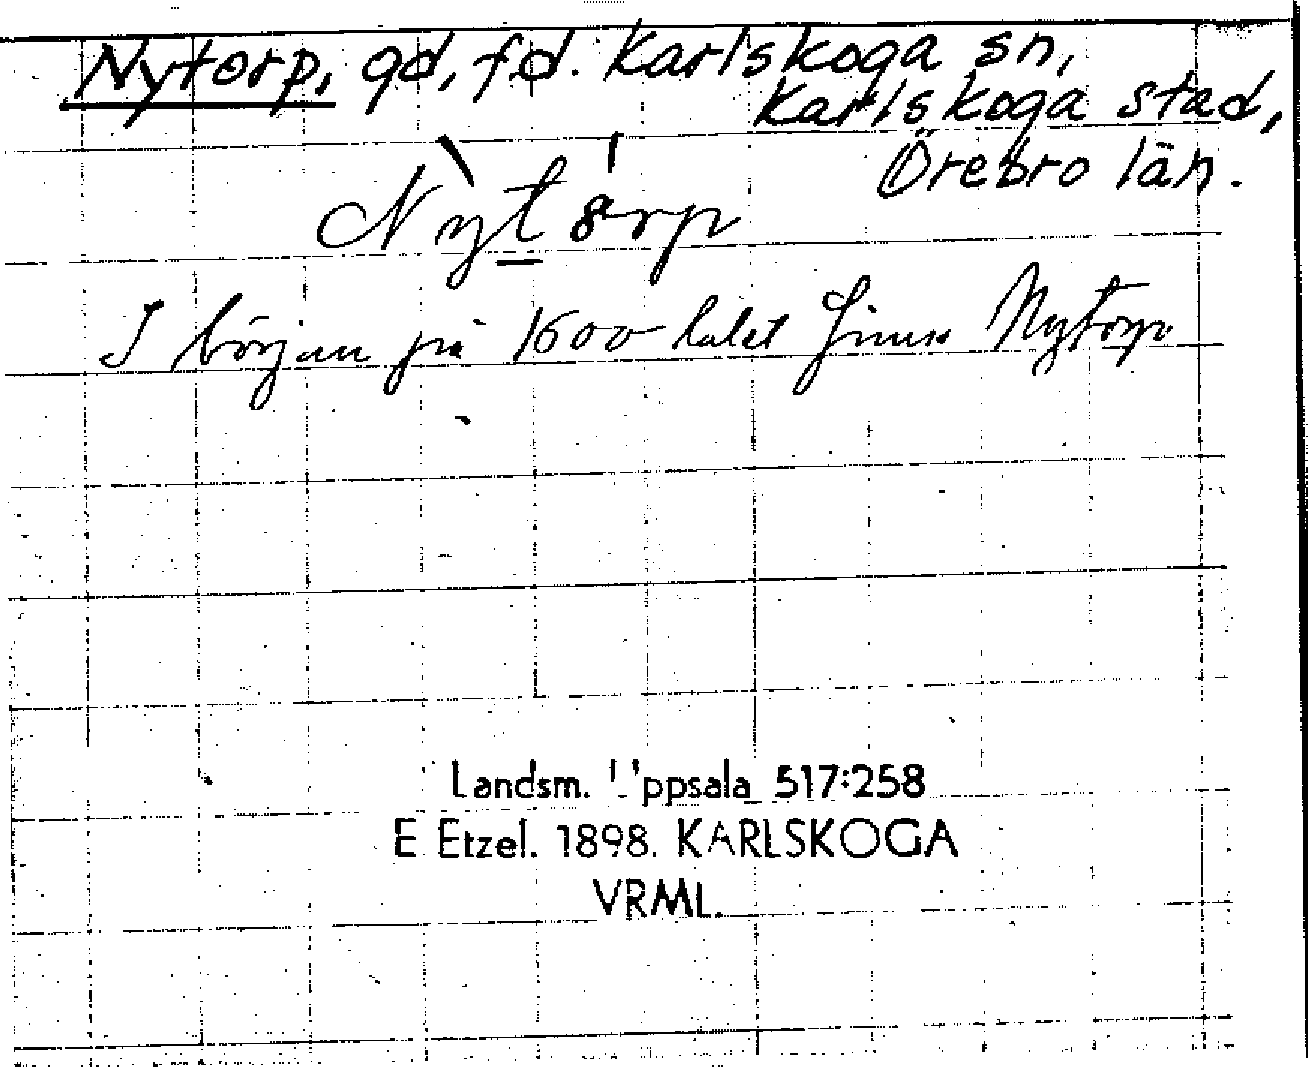 Nytorp, gd, f.d. Karlskoga sn,
Karlskoga stad,
Örebro län.
Nytorp
I början på 1600 talet finns Nytorp
Landsm. Uppsala 517:258
E Etzel. 1898. KARLSKOGA
VRML.